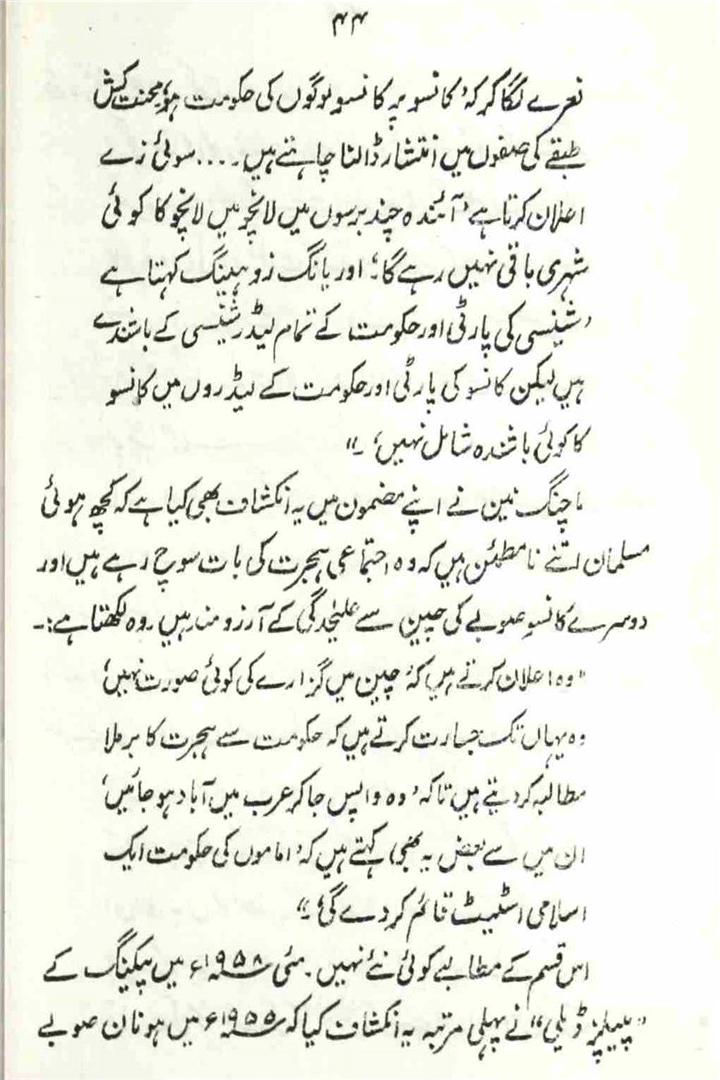 ۴۴
نعرے لگا کر کہ 'کانسو پہ کانسو لوگوں کی حکومت ہو' محنت کش
طبقے کی صفوں میں انتشار ڈالنا چاہتے ہیں۔ .... سوئی زے
اعلان کرتا ہے 'آئندہ چند برسوں میں لانچو میں لانچو کا کوئی
شہری باقی نہیں رہے گا'؛ اور یانگ زو ہینگ کہتا ہے
'شینسی کی پارٹی اور حکومت کے تمام لیڈر شینسی کے باشندے
ہیں لیکن کانسو کی پارٹی اور حکومت کے لیڈروں میں کانسو
کا کوئی باشندہ شامل نہیں' ۔"
ماچنگ نین نے اپنے مضمون میں یہ انکشاف بھی کیا ہے کہ کچھ ہوئی
مسلمان اتنے نامطمئن ہیں کہ وہ اجتماعی ہجرت کی بات سوچ رہے ہیں اور
دوسرے کانسو صوبے کی چین سے علیٰحدگی کے آرزومند ہیں۔ وہ لکھتا ہے:۔
"وہ اعلان کرتے ہیں کہ 'چین میں گزارے کی کوئی صورت نہیں'
وہ یہاں تک جسارت کرتے ہیں کہ حکومت سے ہجرت کا برملا
مطالبہ کر دیتے ہیں تاکہ 'وہ واپس جا کر عرب میں آباد ہو جائیں'
ان میں سے بعض یہ بھی کہتے ہیں کہ 'اماموں کی حکومت ایک
اسلامی اسٹیٹ قائم کر دے گی' ۔"
اس قسم کے مطالبے کوئی نئے نہیں۔ مئی ۱۹۵۸ء میں پیکینگ کے
"پیپلز ڈیلی" نے پہلی مرتبہ یہ انکشاف کیا کہ ۱۹۵۵ء میں ہونان صوبے